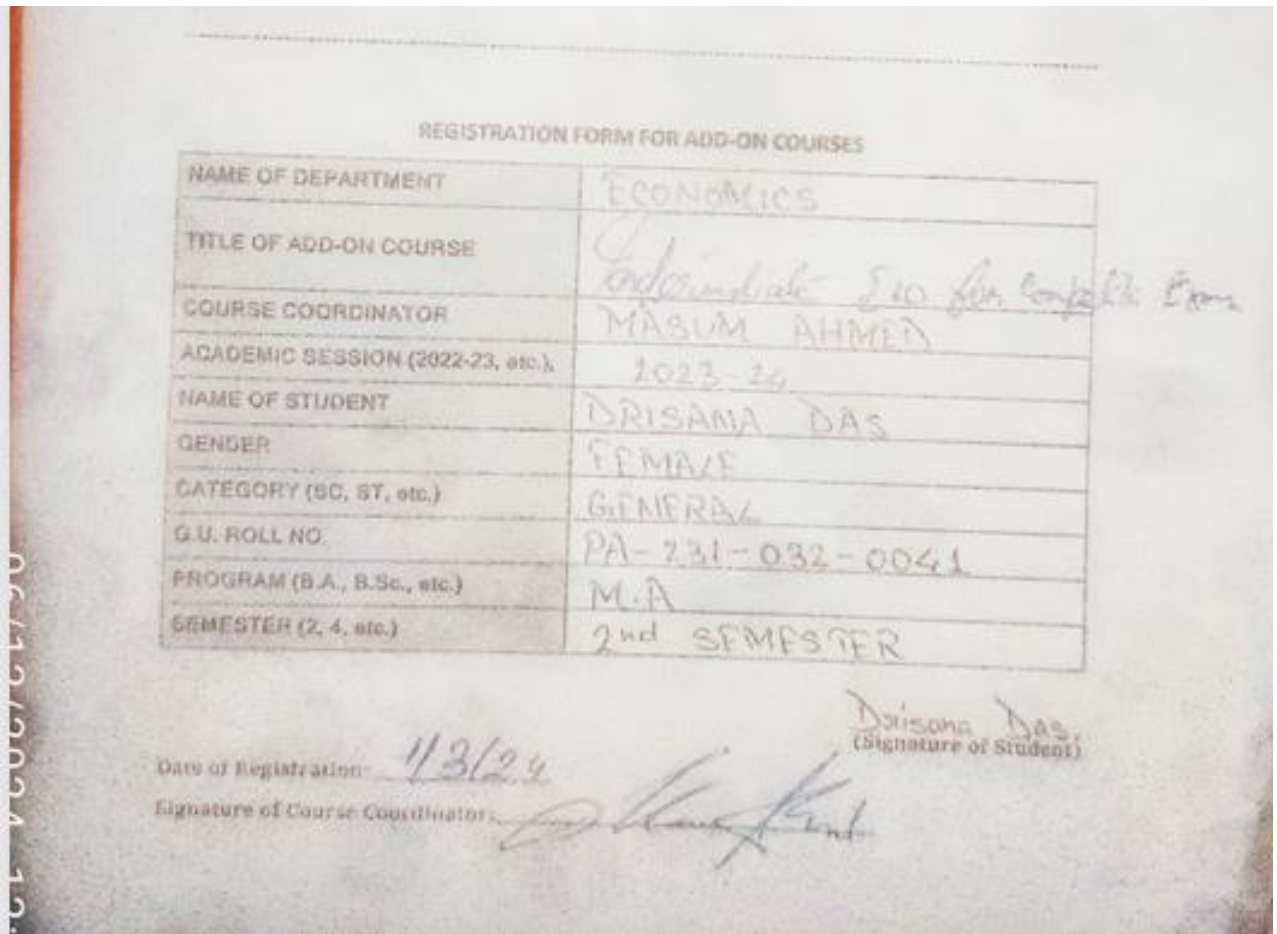 REGISTRATION FORM FOR ADD-ON COURSES
NAME OF DEPARTMENT ECONOMICS
TITLE OF ADD-ON COURSE Eco for Exam
COURSE COORDINATOR MASUM AHMED
ACADEMIC SESSION (2022-23, etc.). 2023-24
NAME OF STUDENT DRISANA DAS
GENDER FEMALE
CATEGORY (SC, ST, etc.) GENERAL
G.U. ROLL NO. PA-231-032-0041
PROGRAM (B.A., B.Sc., etc.) M.A
SEMESTER (2, 4, etc.) 2nd SEMESTER
Drisana Das.
(Signature of Student)
Date of Registration: 1/3/24
Signature of Course Coordinator: